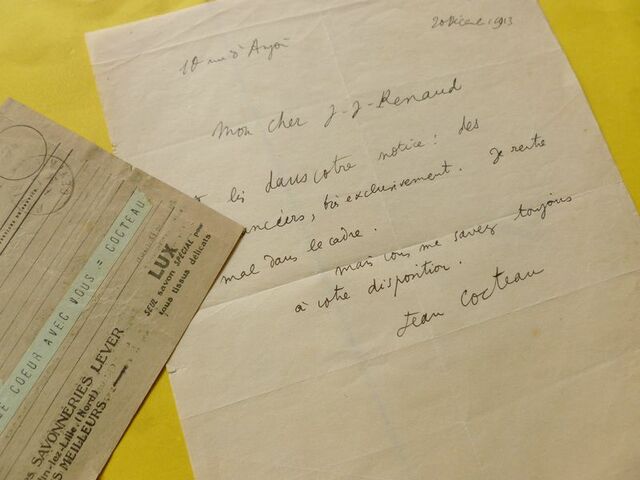 10 rue d'Anjou
20 Décembre 1913
Mon cher J-J-Renaud
lis dans votre notice : des
très exclusivement. Je rentre
mal dans le cadre.
mais vous me savez toujours
à votre disposition.
Jean Cocteau
E COEUR AVEC VOUS = COCTEAU
LUX
SEUL savon SPÉCIAL pour
tous tissus délicats
SAVONNERIES LEVER
lin-lez-Lille. (Nord)
MEILLEURS